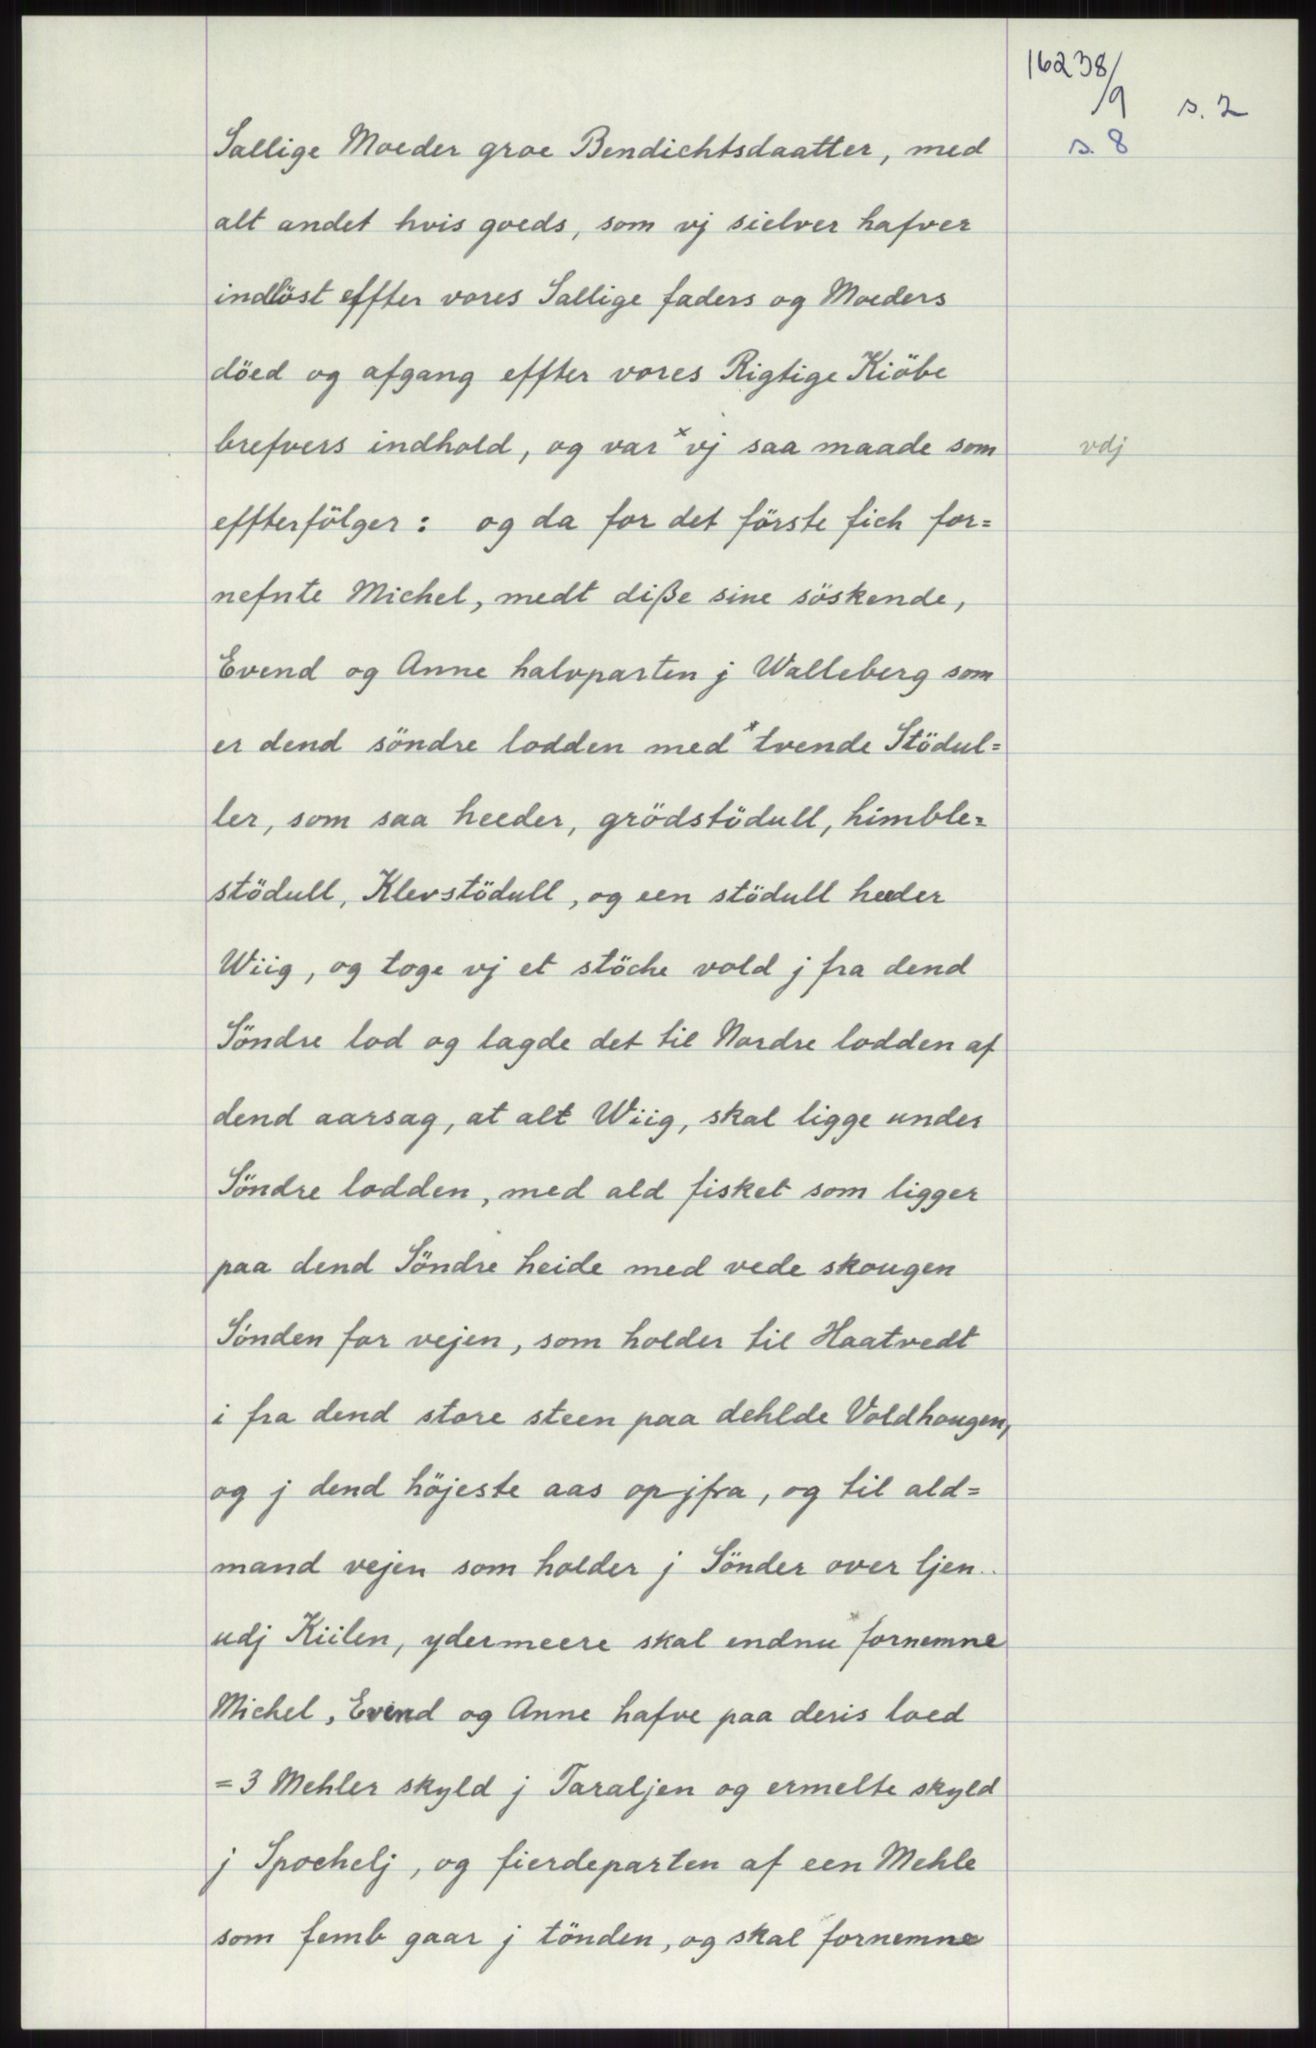 16238/9 s. 2
s. 8
Sallige Moeder groe Bendichtsdaatter, med
alt andet hvis goeds, som vj sielver hafver
indlöst effter vores Sallige faders og Moeders
döed og afgang effter vores Rigtige Kiöbe
brefvers indhold, og var ˣ vj saa maade som
vdj
effterfölger: og da for det förste fich for=
nefnte Michel, medt diße sine söskende,
Evend og Anne halvparten j Walleberg som
er dend söndre lodden med ˣ tvende Stödul=
ler, som saa heeder, grödstödull, himble=
stödull, Klevstödull, og een stödull heeder
Wiig, og toge vj et stöche vold j fra dend
Söndre lod og lagde det til Nordre lodden af
dend aarsag, at alt Wiig, skal ligge under
Söndre lodden, med ald fisket som ligger
paa dend Söndre heide med vede skougen
Sönden for vejen, som holder til Haatvedt
i fra dend store steen paa dehlde Voldhougen,
og j dend höjeste aas op jfra, og til ald=
mand vejen som holder j Sönder over ljen..
udj Kiilen, ydermeere skal endnu ˣ fornemne
Michel, Evend og Anne hafve paa deris loed
= 3 Mehler skyld j Taraljen og ermelte skyld
j Spochelj, og fierdeparten af een Mehle
som femb gaar j tönden, og skal fornemne